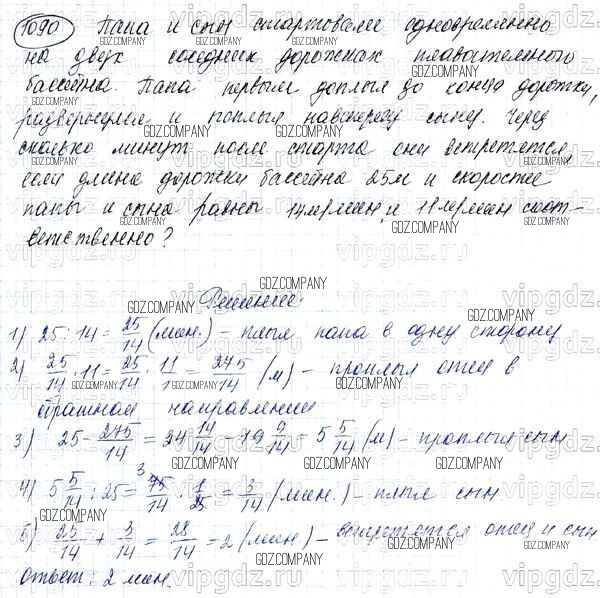 1090) Папа и сын стартовали одновременно
на двух соседних дорожках плавательного
бассейна. Папа первым доплыл до конца дорожки,
развернулся и поплыл навстречу сыну. Через
сколько минут после старта они встретятся,
если длина дорожки бассейна 25м и скорости
папы и сына равны 14м/мин и 11м/мин соот-
ветственно?
Решение:
1) 25 : 14 = 25/14 (мин.) – плыл папа в одну сторону
2) 25/14 · 11 = 25/14 · 11/1 = 275/14 (м) – проплыл отец в
направлении
3) 25 - 275/14 = 24 14/14 - 19 9/14 = 5 5/14 (м) – проплыл сын
4) 5 5/14 : 25 = 75/14 · 1/25 = 3/14 (мин.) – плыл сын
5) 25/14 + 3/14 = 28/14 = 2 (мин) – встретятся отец и сын
ответ: 2 мин.
GDZ.COMPANY
vipgdz.ru